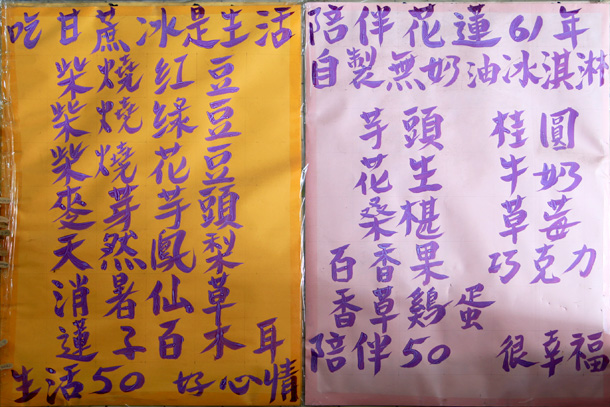 吃甘蔗冰是生活
柴燒紅豆
柴燒綠豆
柴燒花豆
麥芽芋頭
天然鳳梨
消暑仙草
蓮子百木耳
生活50 好心情
陪伴花蓮61年
自製無奶油冰淇淋
芋頭 桂圓
花生 牛奶
桑椹 草莓
百香果 巧克力
香草鷄蛋
陪伴50 很幸福